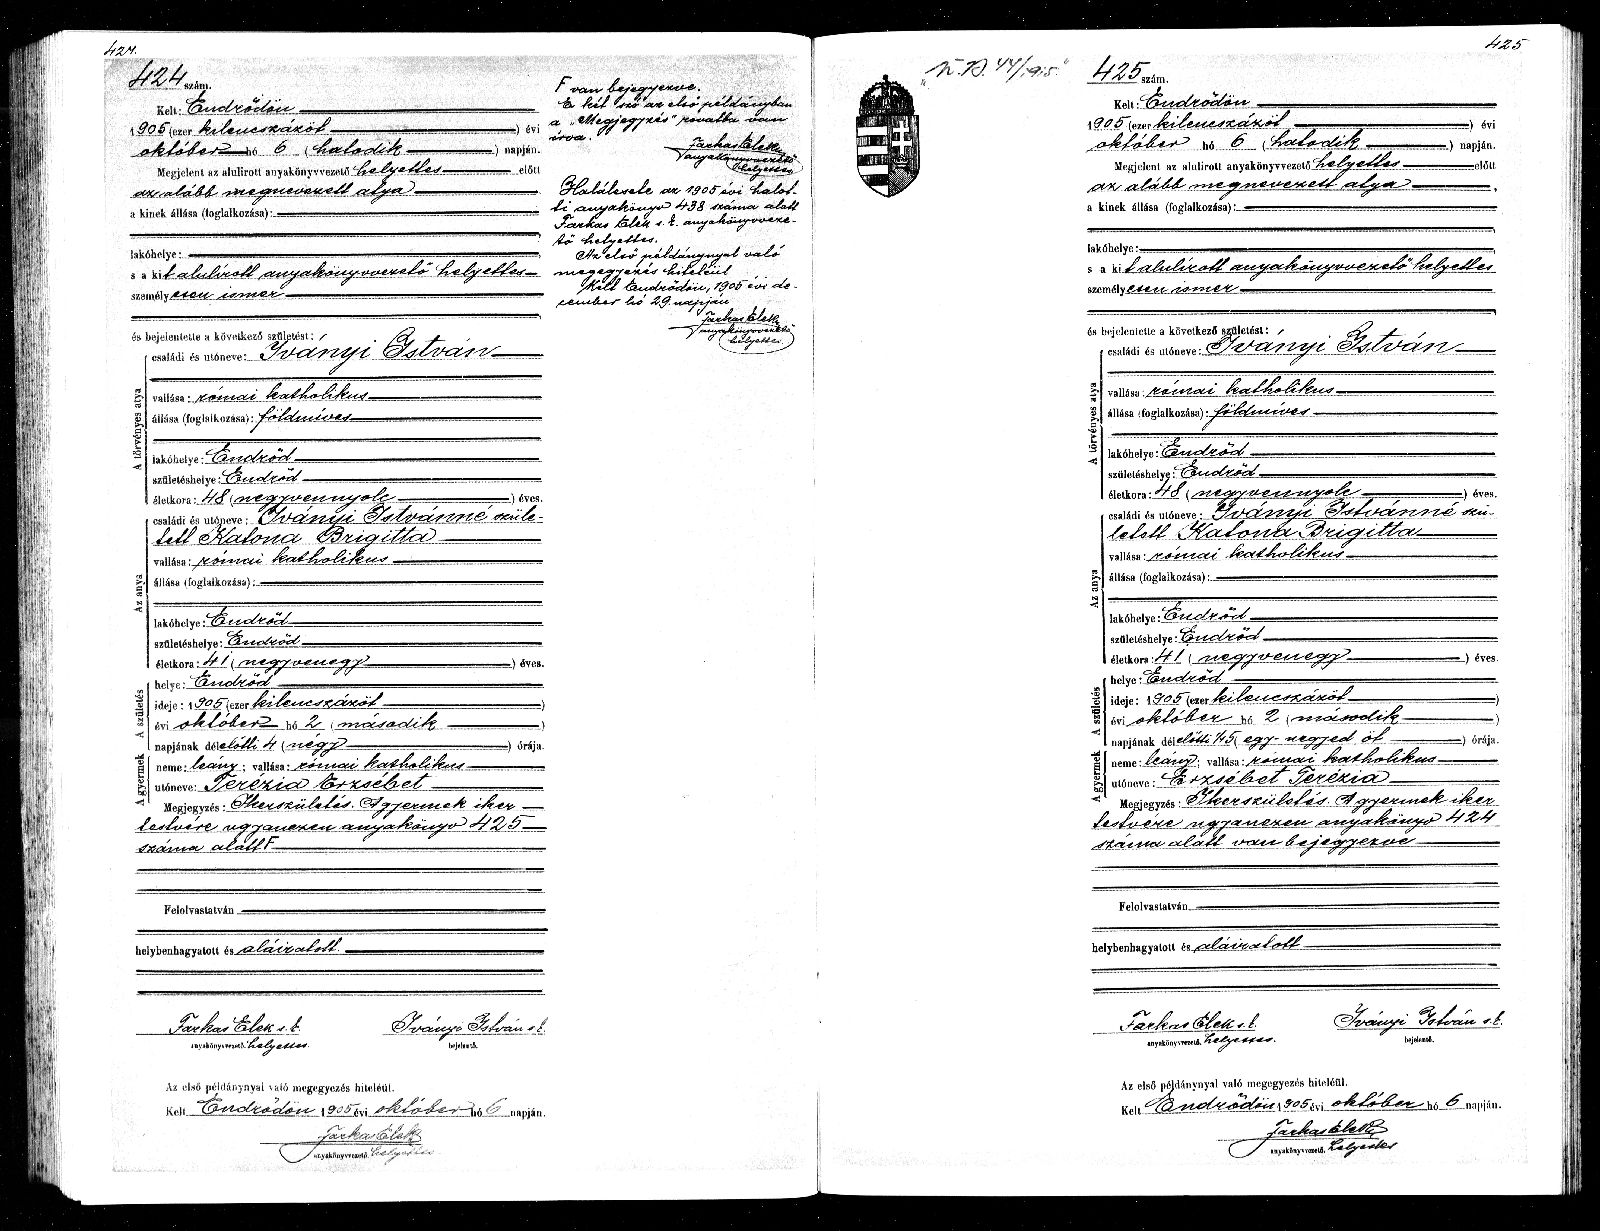 424.
424 szám.
Kelt: Endrődön
1905 (ezer kilencszázöt ) évi
október hó 6 (hatodik ) napján.
Megjelent az alulirott anyakönyvvezető helyettes előtt
az alább megnevezett atya
a kinek állása (foglalkozása):
lakóhelye:
s a kit alulírott anyakönyvvezető helyettes
személyesen ismer
és bejelentette a következő születést:
A törvényes atya
családi és utóneve: Iványi István
vallása: római katholikus
állása (foglalkozása): földmíves
lakóhelye: Endrőd
születéshelye: Endrőd
életkora: 48 (negyvennyolc ) éves.
Az anya
családi és utóneve: Iványi Istvánné szüle-
tett Katona Brigitta
vallása: római katholikus
állása (foglalkozása):
lakóhelye: Endrőd
születéshelye: Endrőd
életkora: 41 (negyvenegy ) éves.
A születés
helye: Endrőd
ideje: 1905 (ezer kilencszázöt )
évi október hó 2 (második )
napjának délelőtti 4 (négy ) órája.
A gyermek
neme: leány; vallása: római katholikus
utóneve: Terézia Erzsébet
Megjegyzés: Ikerszületés. A gyermek iker
testvére ugyanezen anyakönyv 425
száma alatt F
Felolvastatván
helybenhagyatott és aláiratott.
Farkas Elek s.k. Iványi István s.k.
anyakönyvvezető. helyettes bejelentő.
Az első példánynyal való megegyezés hiteléül.
Kelt Endrődön 1905 évi október hó 6 napján.
Farkas Elek
anyakönyvvezető. helyettes
F van bejegyezve.
E két szó az első példányban
a "Megjegyzés" rovatba van
írva.
Farkas Elek
anyakönyvvezető
helyettes
Halálesete az 1905 évi halot-
ti anyakönyv 438 száma alatt
Farkas Elek s.k. anyakönyvveze-
tő helyettes.
Az első példánynyal való
megegyezés hiteléül
Kelt Endrődön, 1905 évi de-
cember hó 29. napján
Farkas Elek
anyakönyvvezető
helyettes
425
425 szám.
Kelt: Endrődön
1905 (ezer kilencszázöt ) évi
október hó 6 (hatodik ) napján.
Megjelent az alulirott anyakönyvvezető helyettes előtt
az alább megnevezett atya
a kinek állása (foglalkozása):
lakóhelye:
s a kit alulírott anyakönyvvezető helyettes
személyesen ismer
és bejelentette a következő születést:
A törvényes atya
családi és utóneve: Iványi István
vallása: római katholikus
állása (foglalkozása): földmíves
lakóhelye: Endrőd
születéshelye: Endrőd
életkora: 48 (negyvennyolc ) éves.
Az anya
családi és utóneve: Iványi Istvánné szü-
letett Katona Brigitta
vallása: római katholikus
állása (foglalkozása):
lakóhelye: Endrőd
születéshelye: Endrőd
életkora: 41 (negyvenegy ) éves.
A születés
helye: Endrőd
ideje: 1905 (ezer kilencszázöt )
évi október hó 2 (második )
napjának délelőtti 1/45 (egy negyed öt ) órája.
A gyermek
neme: leány; vallása: római katholikus
utóneve: Erzsébet Terézia
Megjegyzés: Ikerszületés. A gyermek iker
testvére ugyanezen anyakönyv 424
száma alatt van bejegyezve
Felolvastatván
helybenhagyatott és aláiratott
Farkas Elek s.k. Iványi István s.k.
anyakönyvvezető. helyettes. bejelentő.
Az első példánynyal való megegyezés hiteléül.
Kelt Endrődön 1905 évi október hó 6 napján.
Farkas Elek
anyakönyvvezető. helyettes